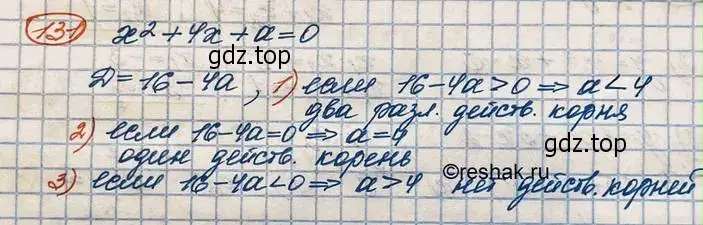 131 x² + 4x + a = 0
gdz.top
gdz.top
D = 16 − 4a, 1) если 16 − 4a > 0 ⇒ a < 4
два разл. действ. корня
2) если 16 − 4a = 0 ⇒ a = 4
один действ. корень
©reshak.ru
3) если 16 − 4a < 0 ⇒ a > 4 нет действ. корней
gdz.top